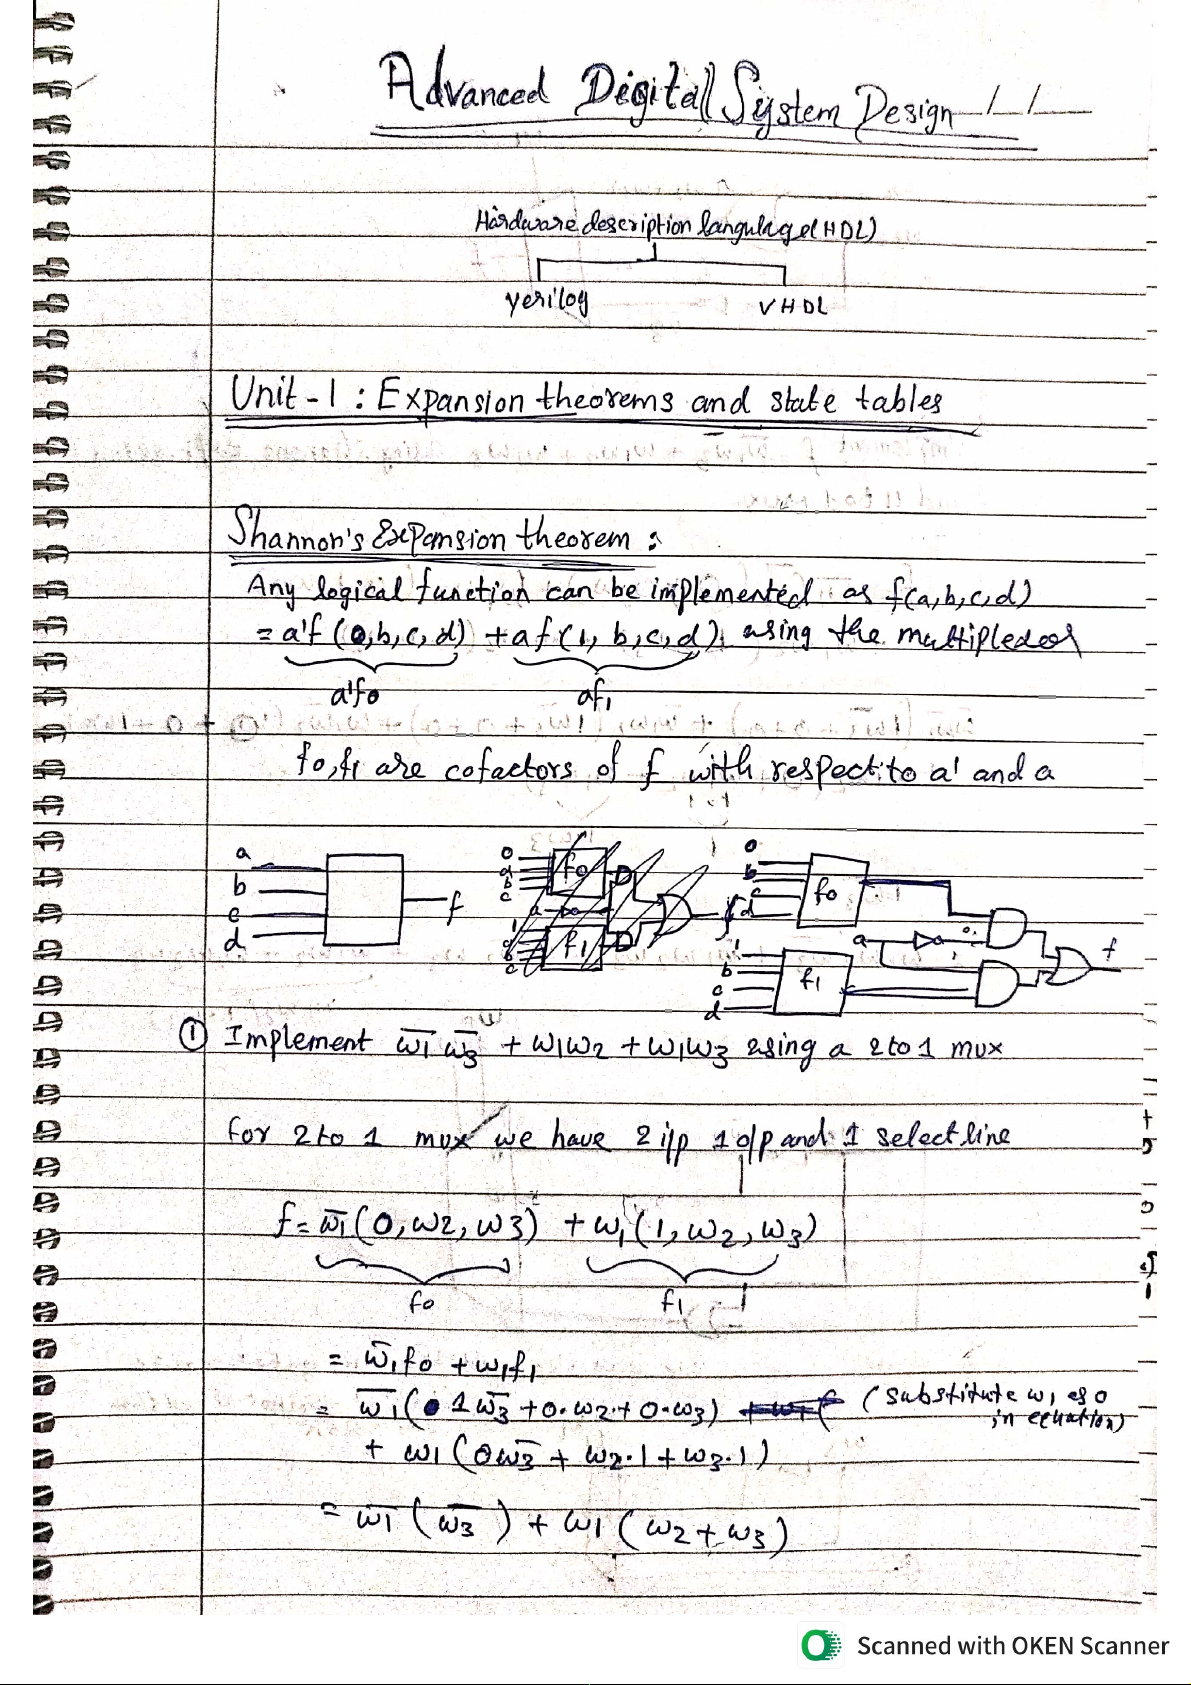 Advanced Digital System Design / /
Hardware description langulage(HDL)
Verilog VHDL
Unit-1: Expansion theorems and state tables
Shannon's Expansion theorem :
Any logical function can be implemented as f(a,b,c,d)
= a'f (0,b,c,d) + a f(1, b,c,d), using the
a'f0 af1
f0,f1 are cofactors of f with respect to a' and a
a
b
c
d
f
0
d
b
c
f0
a
1
f1
0
b
c
d
f0
a
1
b
c
d
f1
f
① Implement w̅1 w̅3 + w1w2 + w1w3 using a 2 to 1 mux
for 2 to 1 mux we have 2 i/p 1 o/p and 1 select line
f = w̅1(0,w2,w3) + w1(1,w2,w3)
f0 f1
= w̅1f0 + w1f1
= w̅1(1w̅3 + 0.w2 + 0.w3) (substitute w1 as 0
in equation)
+ w1(0w̅3 + w2.1 + w3.1)
= w̅1(w̅3) + w1(w2+w3)
Scanned with OKEN Scanner